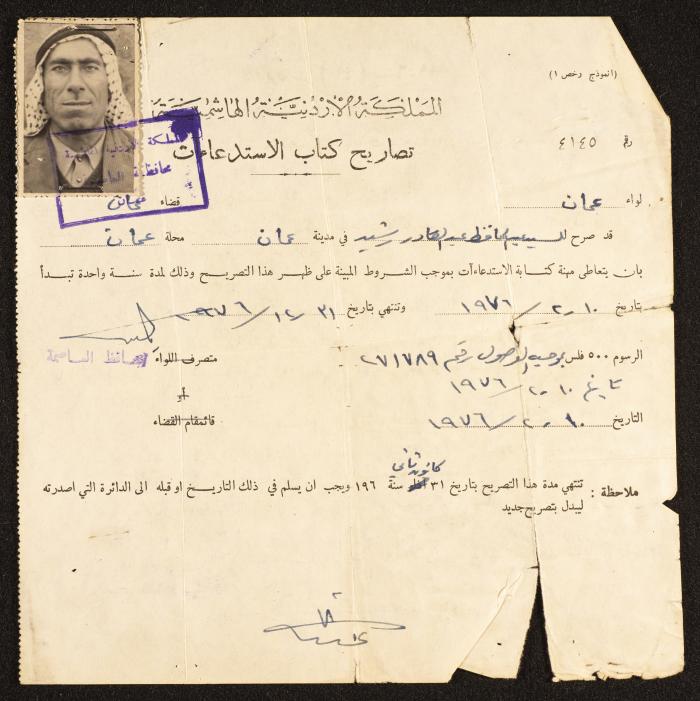 (انموذج رخص ١)
المملكة الأردنية الهاشمية
رقم ٤١٤٥
تصاريح كتاب الاستدعاءات
لواء عمان قضاء عمان
قد صرح للسيد عبد الحافظ عبد القادر رشيد في مدينة عمان محلة عمان
بان يتعاطى مهنة كتابة الاستدعاءآت بموجب الشروط المبينة على ظهر هذا التصريح وذلك لمدة سنة واحدة تبدأ
بتاريخ ١٠-٢/١٩٧٦ وتنتهي بتاريخ ٣١/١٢/١٩٧٦
الرسوم ٥٠٠ فلس بموجب الوصول رقم ٢٧١٧٨٩ متصرف اللواء محافظ العاصمة
تاريخ ١٠-٢/١٩٧٦
أو
التاريخ ١٠-٢/١٩٧٦ قائمقام القضاء
كانون ثاني
ملاحظة : تنتهي مدة هذا التصريح بتاريخ ٣١ سنة ١٩٦ ويجب ان يسلم في ذلك التاريخ او قبله الى الدائرة التي اصدرته
ليبدل بتصريح جديد